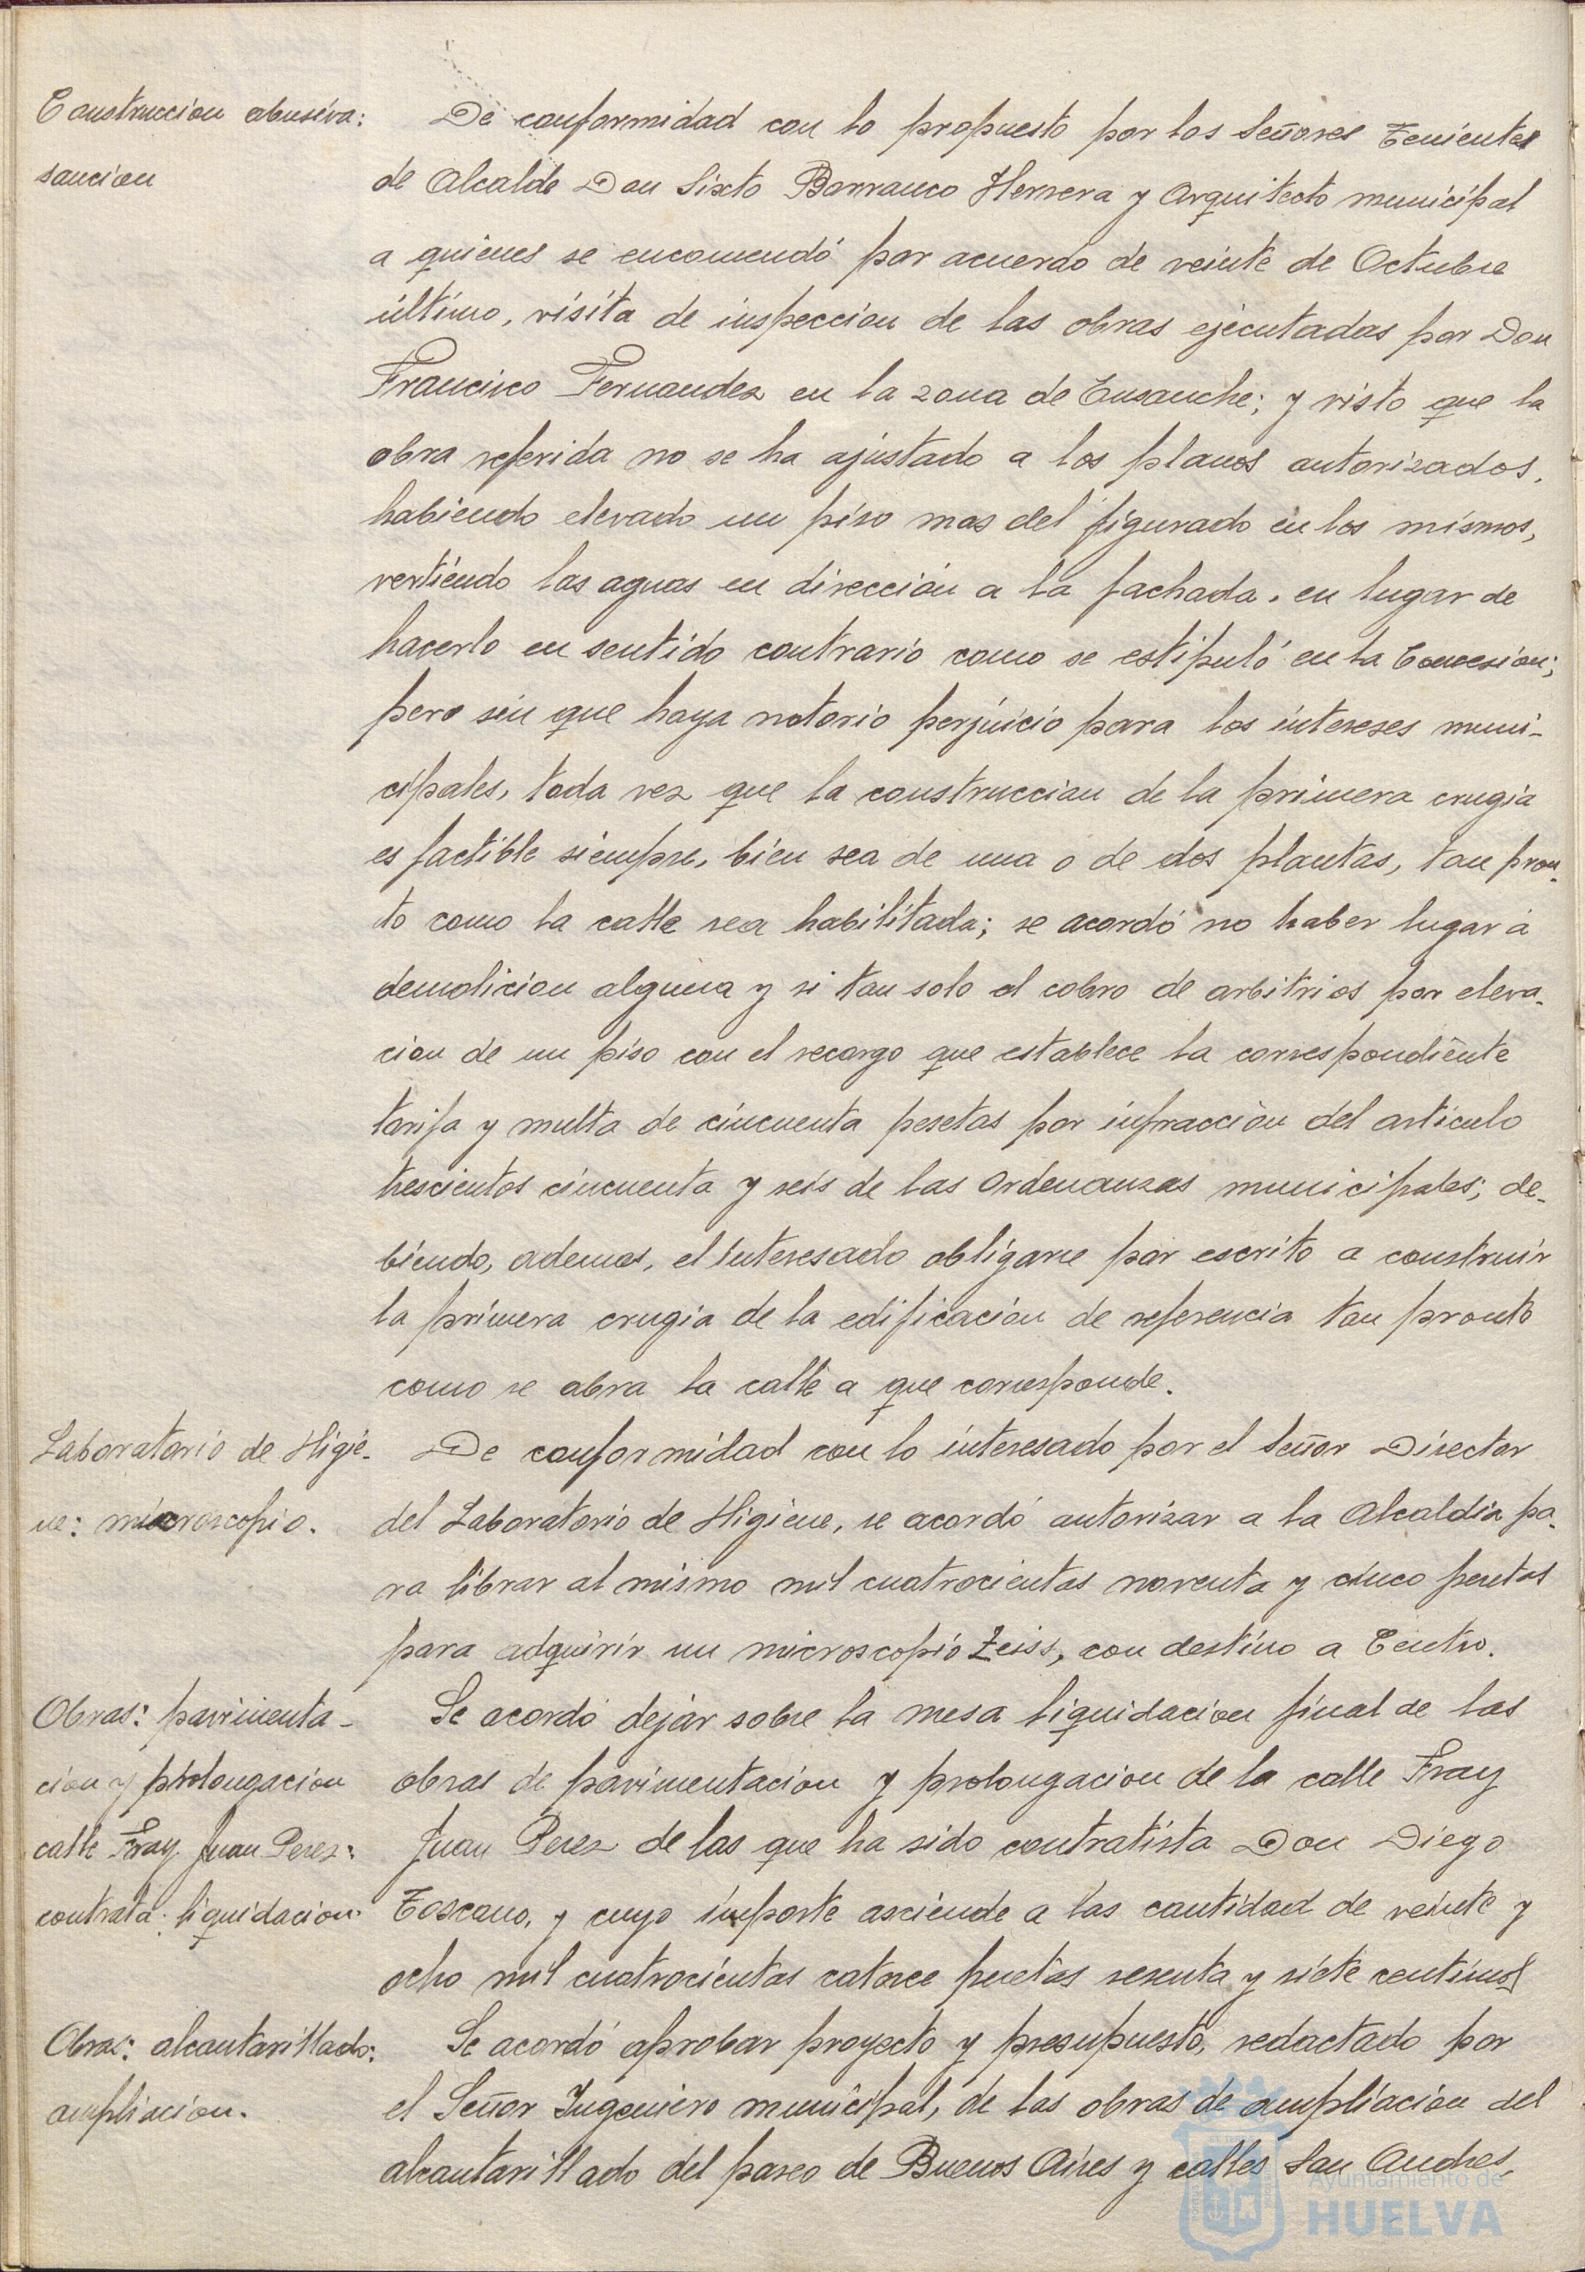 Construccion abusiva:
sancion
De conformidad con lo propuesto por los Señores Tenientes
de Alcalde Don Sixto Barranco Herrera y Arquitecto municipal
a quienes se encomendó por acuerdo de veinte de Octubre
último, visita de inspeccion de las obras ejecutadas por Don
Francisco Fernandez en la zona de Ensanche; y visto que la
obra referida no se ha ajustado a los planos autorizados,
habiendo elevado un piso mas del figurado en los mismos,
vertiendo las aguas en dirección a la fachada, en lugar de
hacerlo en sentido contrario como se estipuló en la Concesion;
pero sin que haya notorio perjuicio para los intereses muni-
cipales, toda vez que la construccion de la primera crugia
es factible siempre, bien sea de una o de dos plantas, tan pron-
to como la calle sea habilitada; se acordó no haber lugar á
demolicion alguna y si tan solo el cobro de arbitrios por eleva-
cion de un piso con el recargo que establece la correspondiente
tarifa y multa de cincuenta pesetas por infraccion del articulo
trescientos cincuenta y seis de las Ordenanzas municipales; de-
biendo, ademas, el interesado obligarse por escrito a construir
la primera crugia de la edificacion de referencia tan pronto
como se abra la calle a que corresponde.
Laboratorio de Higie-
ne: microscopio.
De conformidad con lo interesado por el Señor Director
del Laboratorio de Higiene, se acordó autorizar a la Alcaldia pa-
ra librar al mismo mil cuatrocientas noventa y cinco pesetas
para adquirir un microscopio Zeiss, con destino a Centro.
Obras: pavimenta-
cion y prolongacion
calle Fray Juan Perez:
contrata: liquidacion.
Se acordó dejar sobre la mesa liquidacion final de las
obras de pavimentacion y prolongacion de la calle Fray
Juan Perez de las que ha sido contratista Don Diego
Toscano, y cuyo importe asciende a las cantidad de veinte y
ocho mil cuatrocientas catorce pesetas sesenta y siete centimos
Obras: alcantarillado:
ampliacion.
Se acordó aprobar proyecto y presupuesto, redactado por
el Señor Ingeniero municipal, de las obras de ampliacion del
alcantarillado del paseo de Buenos Aires y calles San Andres,
Ayuntamiento de
HUELVA